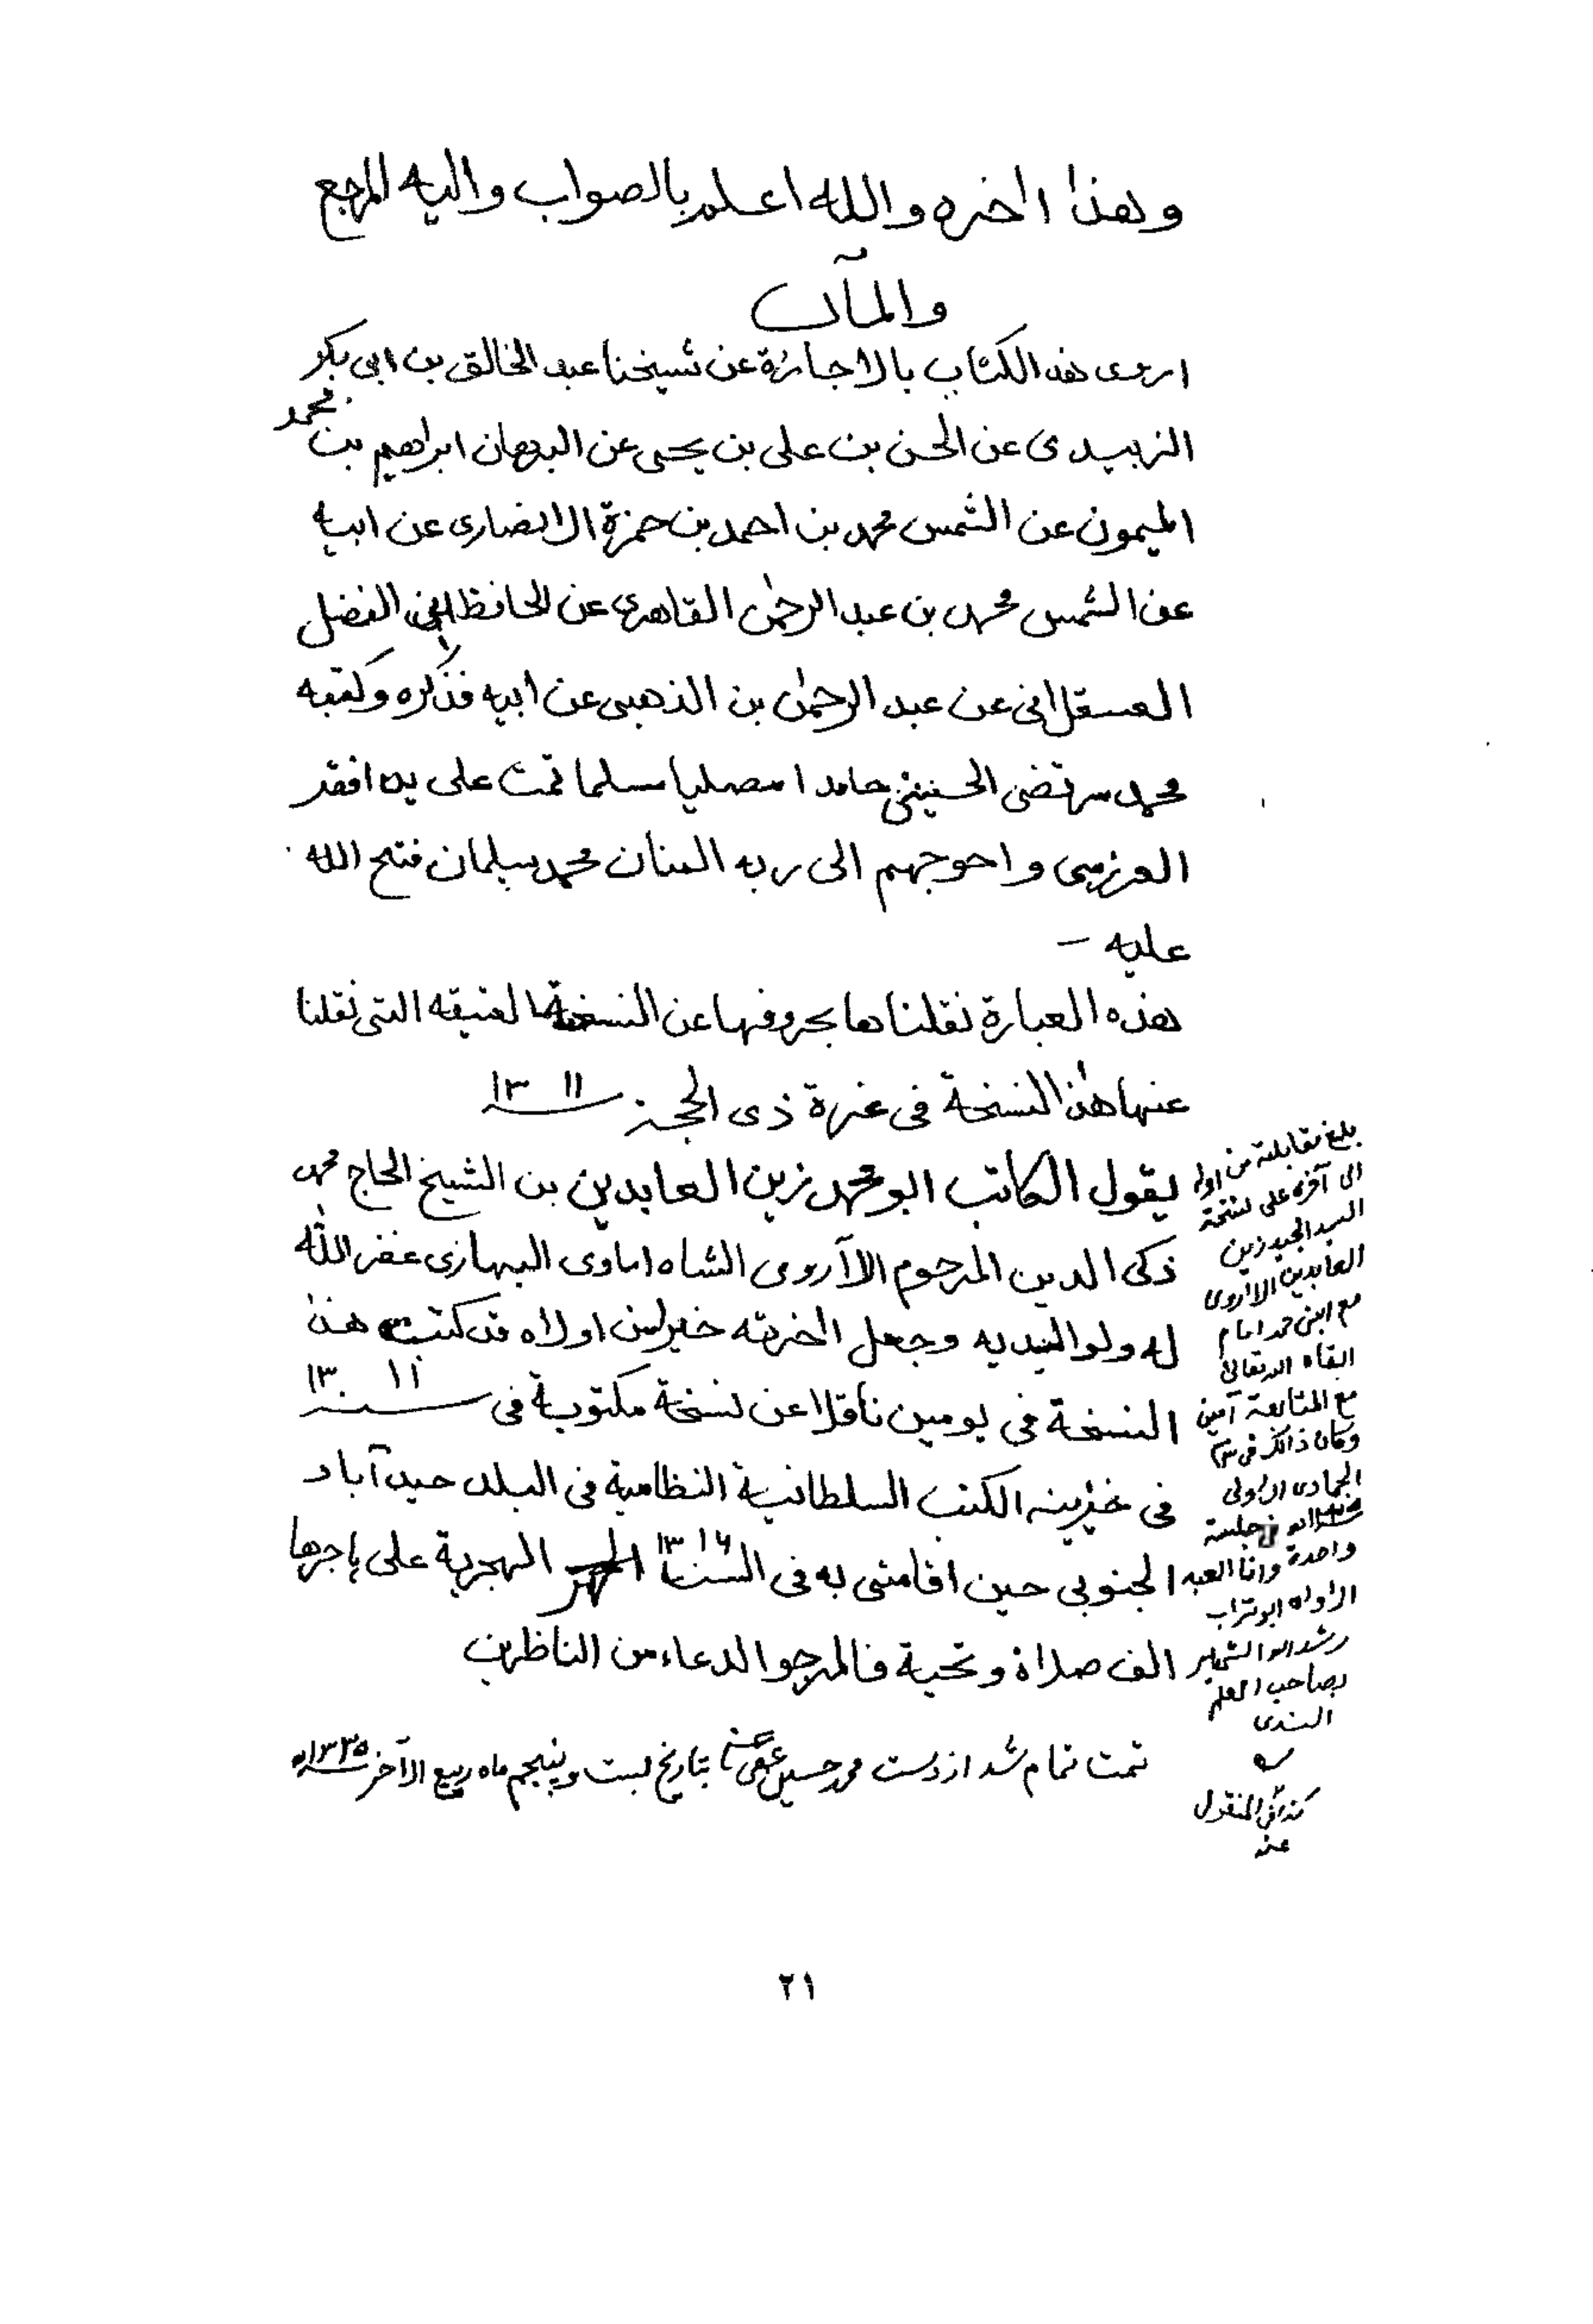 وهذا اخره والله اعلم بالصواب واليه المرجع
والمآب
اروى هذه الكتاب بالاجازة عن شيخنا عبد الخالق بن ابى بكر
الزبيدى عن الحسن بن على بن يحيى عن البرهان ابراهيم بن محمد
الميمون عن الشمس محمد بن احمد بن حمزة الانصارى عن ابيه
عن الشمس محمد بن عبد الرحمٰن القاهرى عن الحافظ ابى الفضل
العسقلانى عن عبد الرحمٰن بن الذهبى عن ابيه فذكره وكتبه
محمد مرتضى الحسينى حامدا مصليا مسلما تمت على يد افقر
العزمى واحوجهم الى ربه المنان محمد سليمان فتح الله
عليه –
هذه العبارة نقلناها بحروفها عن النسخة العتيقه التى نقلنا
عنها هذا النسخة فى غرة ذى الحجة سنه ١٣١١
يقول الكاتب ابو محمد زين العابدين بن الشيخ الحاج محمد
ذكى الدين المرحوم الاآروى الشاه ابادى البهارى غفر الله
له ولوالديه وجعل اخرته خير من اولاه قد كتبت هذا
النسخة فى يومين ناقلا عن نسخة مكتوبة فى سنه ١٣١١
فى خزينه الكتب السلطانية النظامية فى البلد حيدآباد
الجنوبى حين اقامتى به فى السنة ١٣١٦ الهجرية على ہاجرها
الف صلاة وتحية فالمرجو الدعاء من الناظرين
تمت تمام شد از دست محمد حسين عفى عنه بتاريخ بست وپنجم ماه ربيع الآخر سنه ١٣٣٥ه
بلغ مقابلة من اوله
الى آخره على نسخة
السيد الجيد زين
العابدين الاآروى
مع ابنى محمد امام
ابقاه الله تعالى
مع المتابعة آمين
وكان ذالك فى
الجمادى الاولى
جلسة
واحدة وانا العبد
الاواه ابو تراب
رشد الله الشهير
بصاحب العلم
السندى
كذا فى المنقول
عنه
٢١